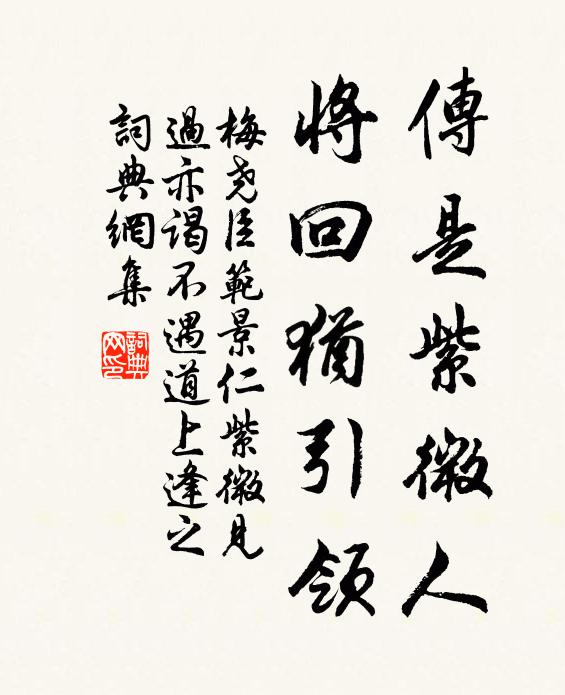 傳是紫微人
將回猶引領
梅尧臣範景仁紫微見
過亦謁不遇道上逢之
詞典網集
詞典
网印